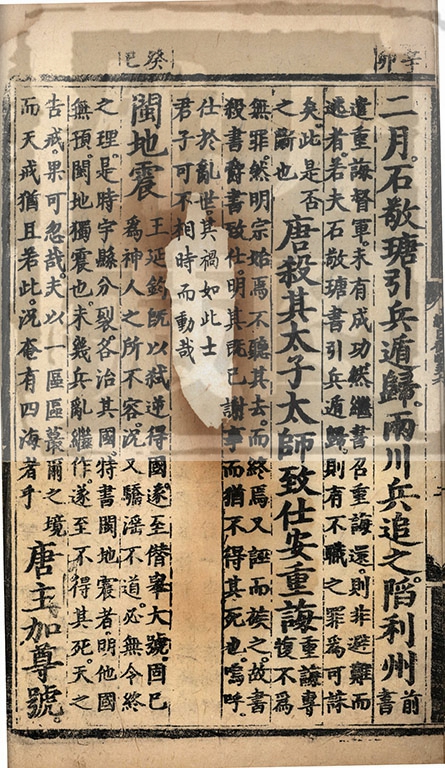 辛卯
二月。石敬瑭引兵遁歸。兩川兵追之。陷利州
前書
遣重誨督軍。未有成功。然繼書召重誨還。則非避難而
逃者。若夫石敬瑭書引兵遁歸。則有不職之罪爲可誅
矣。此是否
之斷也
唐殺其太子太師致仕安重誨
重誨專
復不爲
無罪。然明宗始焉不聽其去。而終焉又誣而族之。故書
殺書爵書致仕。明其既已謝事而猶不得其死也。嗚呼。
仕於亂世。其禍如此。士
君子可不相時而動哉
癸巳
閩地震
王延鈞既以弒逆得國。遂至僭舉大號。固已
爲神人之所不容。況又驕淫不道。必無令終
之理。是時宇縣分裂。各治其國。特書閩地震者。明他國
無預。閩地獨震也。未幾兵亂繼作。遂至不得其死。天之
告戒果可忽哉。夫以一區區蕞爾之境
而天戒猶且若此。況奄有四海者乎
唐主加尊號。